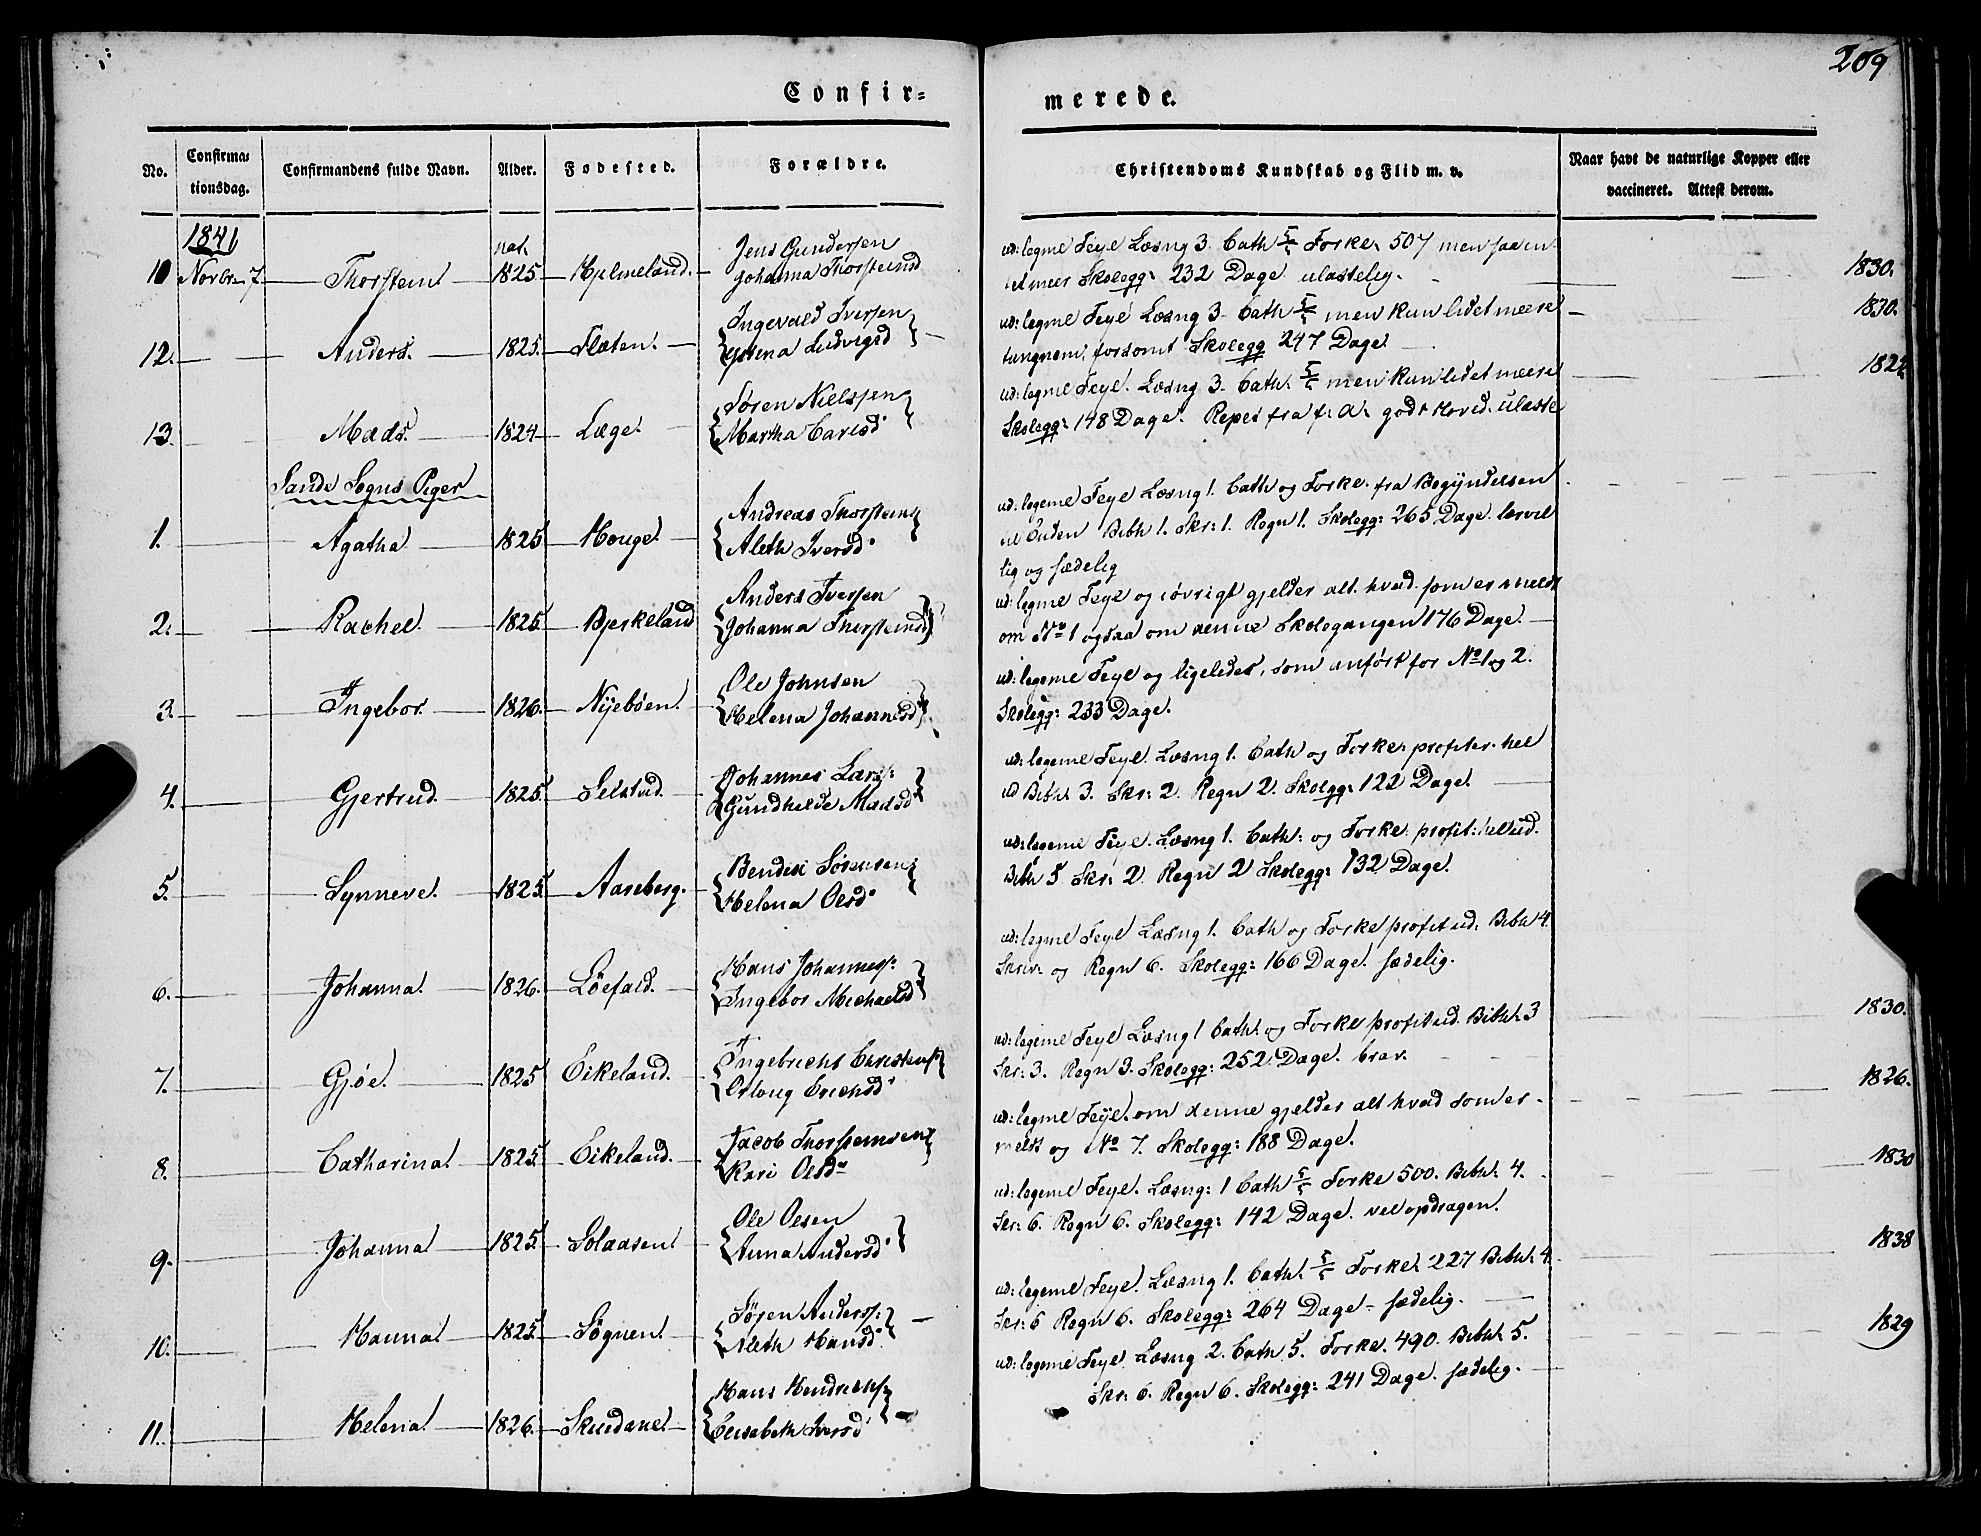 209
Confir=
merede.
No.
Confirma=
tionsdag.
Confirmandens fulde Navn.
Alder.
Fødested.
Forældre.
Christendoms Kundskab og Flid m. v.
Naar havt de naturlige Kopper eller
vaccineret. Attest derom.
1841
nat.
Jens Gundersen
10 Novbr 7. Thorstein 1825 Hjelmeland. Johanna Thorsteinsd
ud: legme Feyl Læsng 3. Cath 5/5 Forke 507 men
meer Skolegg: 232 Dage ulastelig. 1830.
Ingevald Iversen
12. Anders. 1825. Flaten. Ludvigsd
ud: legme Feyl Læsng 3. Cath 5/5 men kun lidet meere 1830.
forsømt Skolegg 247 Dage
Søren Nielssen
13. Mads. 1824 Læge. Martha Carlsd
ud: legme Feyl. Læsng 3. Cath. 5/5 men kun lidet meere
Skolegg: 148 Dage. fra godt Hoved. ulaste
Sande Sogns Piger
Andreas Thorsteins
1. Agatha 1825 Houge Aleth Iversd
ud: legeme Feyl Læsng 1. Cath og Forke. fra Begyndelsen
til Enden Bibh 1. Skr: 1. Regn 1. Skolegg: 265 Dage lærvil
lig og sædelig
Anders Iversen
2. Rachel 1825 Bjerkeland Johanna Thorsteinsd
ud: legme Feyl og iøvrigt gjelder alt hvad som er meldt
om No 1 ogsaa om denne Skolegangen 176 Dage.
Ole Johnsen
3. Ingebor 1826. Nijebøen. Helena Johannesd
ud: legeme Feyl og ligeledes, som anført for No 1 og 2.
Skolegg: 233 Dage.
Johannes Lars:
4. Gjertrud 1825 Selstad. Gundhilde Madsd
ud: legeme Feyl. Læsng 1. Cath og Forke: profiter. hel
ud Bibh. 3. Skr: 2. Regn 2. Skolegg: 122 Dage.
Bendix Sørensen
5. Synneve. 1825 Aareberg. Helena Olsd
ud: legeme Feyl. Læsng 1. Cath: og Forke. profit: hel ud.
Bibh 5 Skr: 2. Regn 2 Skolegg: 132 Dage.
Hans Johanness:
6. Johanna. 1826. Løefald. Ingebor Michaelsd
ud: legme Feyl Læsng 1. Cath og Forke profit ud. Bibh 4.
Skriv: og Regn 6. Skolegg: 166 Dage. sædelig.
Ingebricht Christens
7. Gjøe. 1825 Eikeland. Erichsd
ud: legeme Feyl Læsng 1 Cath. og Forke profit ud. Bibh. 3 1830.
Skr: 3. Regn 3. Skolegg: 252 Dage. brav.
Jacob Thorsteinsen
8. Catharina. 1825 Eikeland. Kari Olsd
ud: legme Feyl. om denne gjelder alt hvad som er 1826.
meldt og No 7. Skolegg: 188 Dage.
Ole Olsen
9. Johanna 1825 Solaasen Anna Andersd
ud: legeme Feyl. Læsng: 1 Cath 5/5 Forke 500. Bibh. 4. 1830
Skr: 6. Regn 6. Skolegg: 142 Dage. vel opdragen.
Søren Anderss:
10. Hanna 1825 Sygnen Aleth Hansd
ud: legeme Feyl. Læsng 1. Cath. 5/5 Forke. 227 Bibh. 4. 1838
Skr: 6 Regn 6. Skolegg: 264 Dage - sædelig.
Hans Hendrichs
11. Helena 1826. Skudane Elisabeth Iversd
ud: legeme Feyl Læsng 2. Cath 5. Forke. 490. Bibh. 5. 1829
Skr: 6. Regn 6. Skolegg: 241 Dage. sædelig.